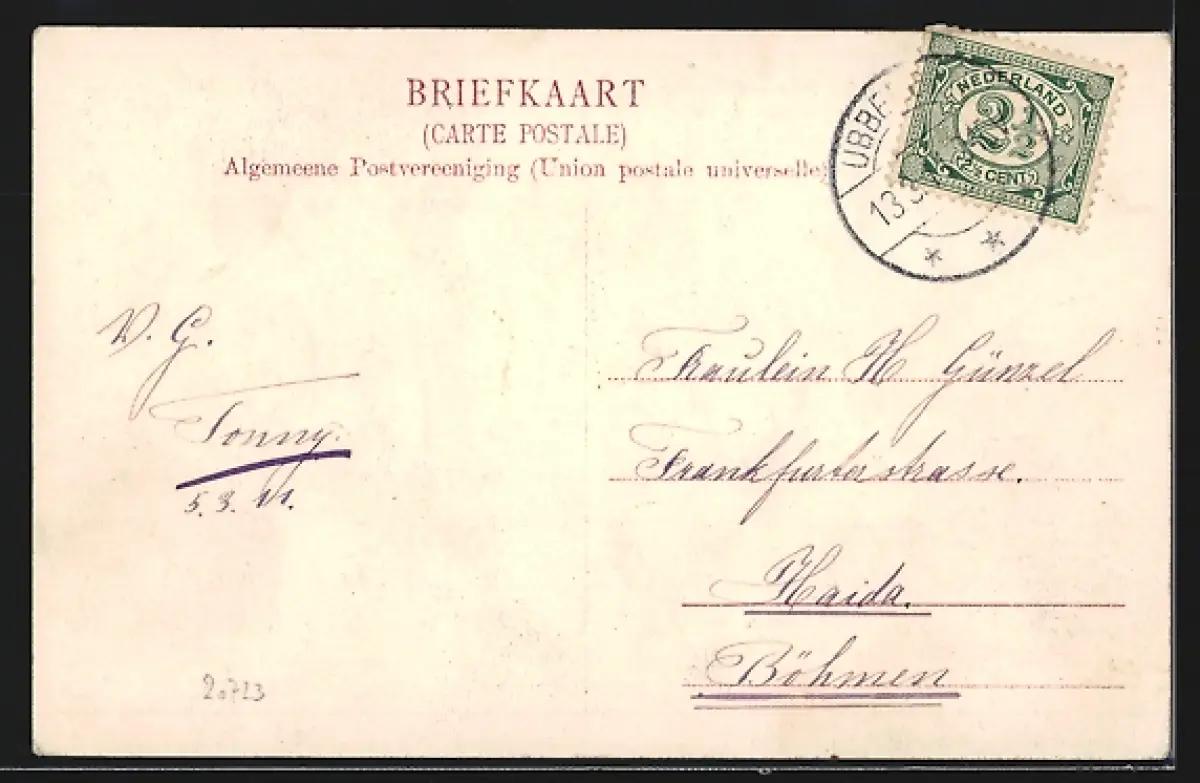 BRIEFKAART
(CARTE POSTALE)
Algemeene Postvereeniging (Union postale universelle)
NEDERLAND
2½
2½ CENT
UBBE
13 3
V. G.
Tonny.
5. 3. 11.
Fraulein H Günzel
Frankfurterstrasse.
Haida.
Böhmen
20723